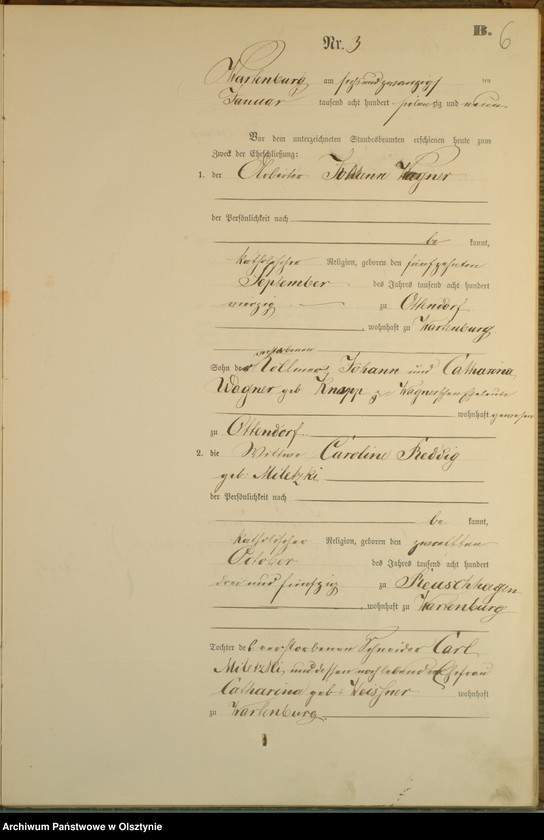 B. 6
Nr. 3
Wartenburg, am sechsundzwanzigsten
Januar tausend acht hundert und neun
Vor dem unterzeichneten Standesbeamten erschienen heute zum
Zweck der Eheschließung:
1. der Arbeiter Johann Wagner
der Persönlichkeit nach
be kannt,
katholischer Religion, geboren den fünfzehnten
September des Jahres tausend acht hundert
vierzig zu Ottendorf
, wohnhaft zu Wartenburg
verstorbenen
Sohn der Johann und Catharina
Wagner geb. Knapp Wagnerschen Eheleute
wohnhaft gewesen
zu Ottendorf.
2. die Wittwe Caroline Reddig
geb. Miletzki
der Persönlichkeit nach
be kannt,
katholischer Religion, geboren den zwoelften
October des Jahres tausend acht hundert
drei und fünfzig zu Reuschhagen
, wohnhaft zu Wartenburg
Tochter des verstorbenen Schneider Carl
Miletzki, und dessen noch lebenden Ehefrau
Catharina geb. wohnhaft
zu Wartenburg.
Archiwum Państwowe w Olsztynie